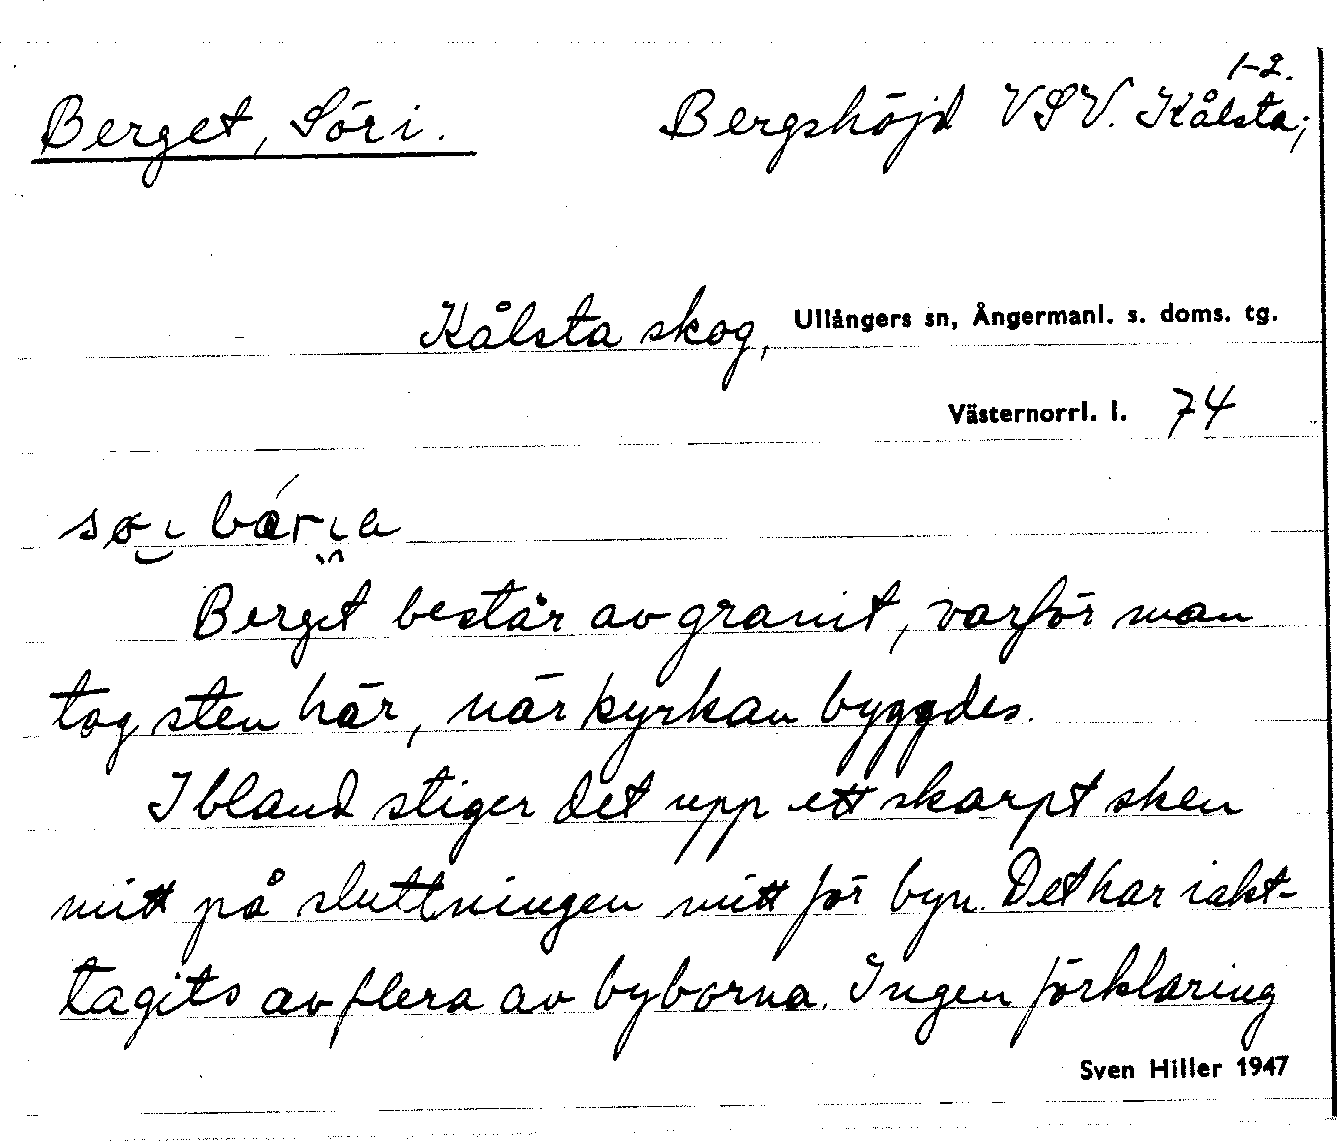 1-2.
Berget, Söri. Bergshöjd VSV. Kålsta;
Kålsta skog, Ullångers sn, Ångermanl. s. doms. tg.
Västernorrl. l. 74
Berget består av granit, varför man
tog sten här, när kyrkan byggdes.
Ibland stiger det upp ett skarpt sken
mitt på sluttningen mitt för byn. Det har iakt-
tagits av flera av byborna. Ingen förklaring
Sven Hiller 1947